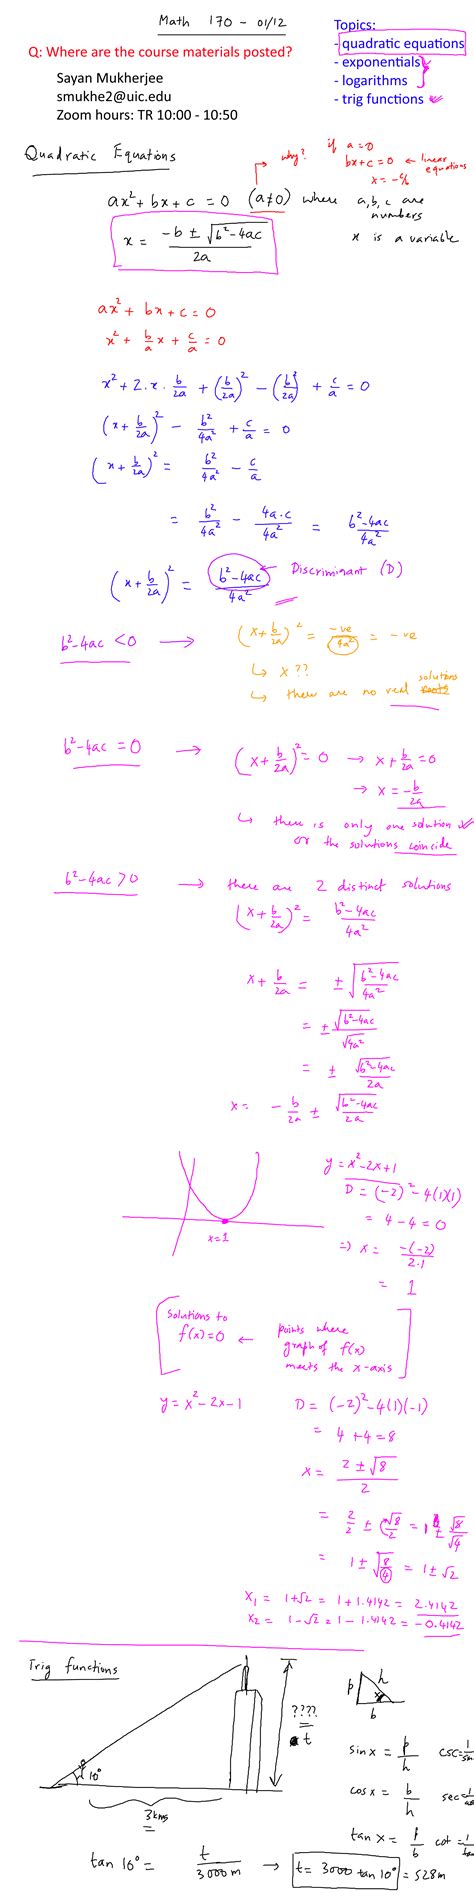 Math 170 - 01/12
Topics:
- quadratic equations
- exponentials
- logarithms
- trig functions
Q: Where are the course materials posted?
Sayan Mukherjee
smukhe2@uic.edu
Zoom hours: TR 10:00 - 10:50
Quadratic Equations
why?
if a=0
bx+c=0 ← linear equations
x = -c/b
ax²+bx+c = 0 (a≠0) where a,b,c are numbers
x = (-b ± √(b²-4ac))/2a
x is a variable
ax²+bx+c = 0
x² + b/a x + c/a = 0
x² + 2.x.b/2a + (b/2a)² - (b/2a)² + c/a = 0
(x + b/2a)² - b²/4a² + c/a = 0
(x + b/2a)² = b²/4a² - c/a
= b²/4a² - 4a.c/4a² = (b²-4ac)/4a²
(x + b/2a)² = (b²-4ac)/4a² ← Discriminant (D)
b²-4ac < 0 → (x + b/2a)² = -ve/4a² = -ve
↳ x ??
↳ there are no real solutions
b²-4ac = 0 → (x + b/2a)² = 0 → x + b/2a = 0
→ x = -b/2a
↳ there is only one solution
or the solutions coincide
b²-4ac > 0 → there are 2 distinct solutions
(x + b/2a)² = (b²-4ac)/4a²
x + b/2a = ± √((b²-4ac)/4a²)
= ± √(b²-4ac)/√4a²
= ± √(b²-4ac)/2a
x = - b/2a ± √(b²-4ac)/2a
y = x²-2x+1
D = (-2)² - 4(1)(1)
= 4 - 4 = 0
x=1
⇒ x = -(-2)/2.1
= 1
[solutions to f(x)=0 ← points where graph of f(x) meets the x-axis]
y = x²-2x-1
D = (-2)²-4(1)(-1)
= 4+4=8
x = (2 ± √8)/2
= 2/2 ± √8/2 = 1 ± √8/√4
= 1 ± √(8/4) = 1 ± √2
x₁ = 1+√2 = 1+1.4142 = 2.4142
x₂ = 1-√2 = 1-1.4142 = -0.4142
Trig functions
????
t
10°
3kms
p h
x
b
sin x = p/h csc = 1/
cos x = b/h sec = 1/
tan x = p/b cot = 1/
tan 10° = t/3000m → t = 3000 tan 10° = 528m